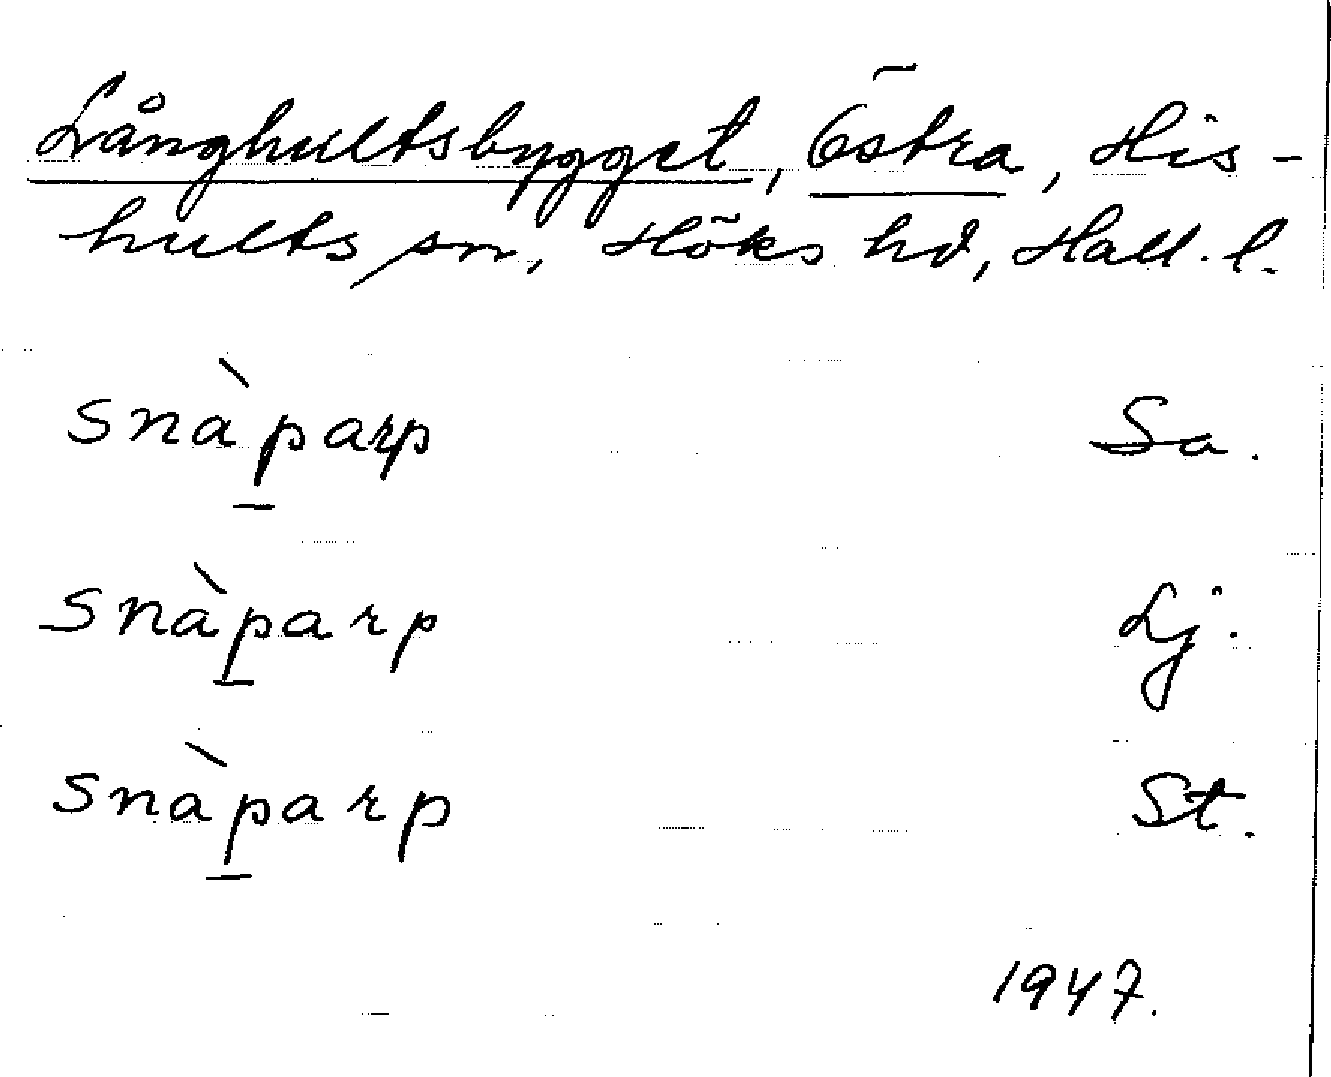 Långhultsbygget, Östra, His-
hults sn, Höks hd, Hall. l.
snàparp Sa.
snàparp Lj.
snàparp St.
1947.